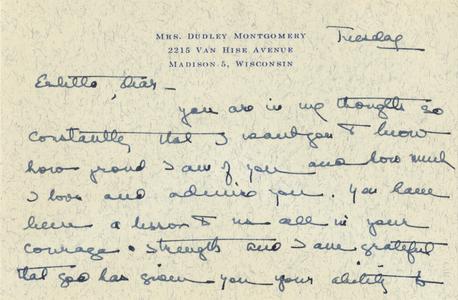 Mrs. Dudley Montgomery
2215 Van Hise Avenue
Madison 5, Wisconsin
Tuesday
Estitto, dear —
you are in my thoughts so
constantly that I want you to know
how proud I am of you and how much
I love and admire you. You have
been a lesson to us all in your
courage & strength and I am grateful
that God has given you your ability to